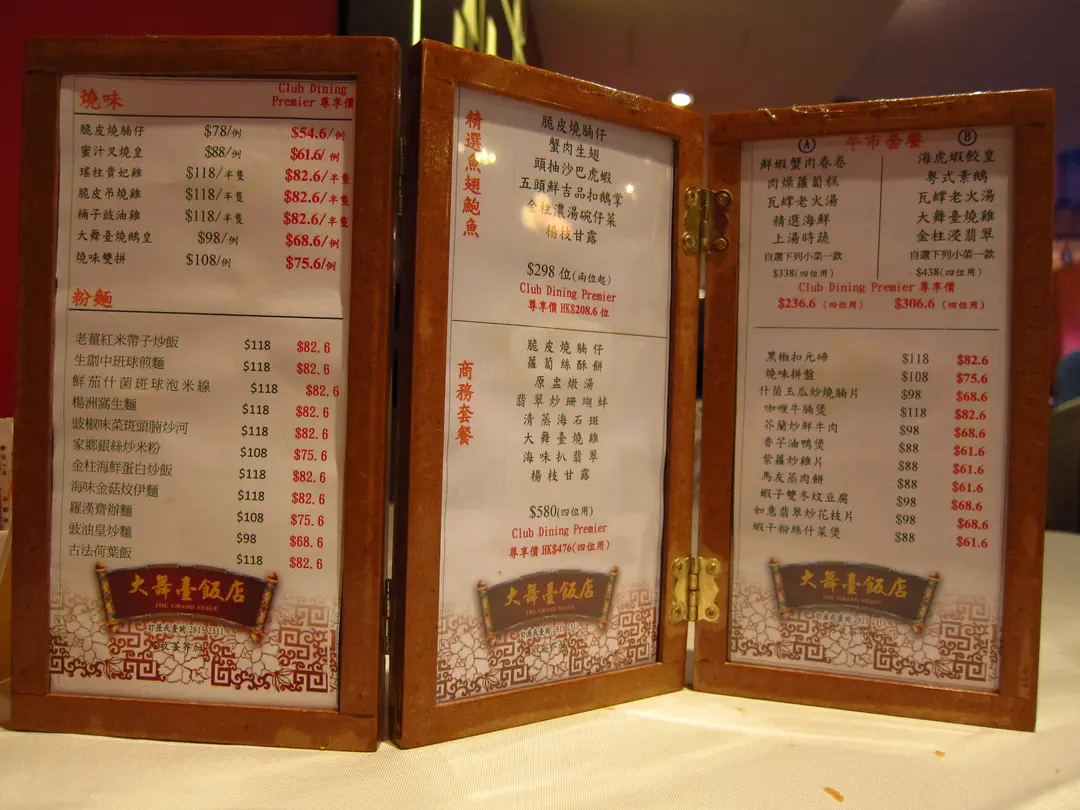 燒味
Club Dining
Premier 尊享價
脆皮燒腩仔 $78/例 $54.6/例
蜜汁叉燒皇 $88/例 $61.6/例
瑤柱貴妃雞 $118/半隻 $82.6/半隻
脆皮吊燒雞 $118/半隻 $82.6/半隻
桶子豉油雞 $118/半隻 $82.6/半隻
大舞臺燒鵝皇 $98/例 $68.6/例
燒味雙拼 $108/例 $75.6/例
粉麵
老薑紅米帶子炒飯 $118 $82.6
生劏中班球煎麵 $118 $82.6
鮮茄什菌斑球泡米線 $118 $82.6
楊洲窩生麵 $118 $82.6
豉椒味菜斑頭腩炒河 $118 $82.6
家鄉銀絲炒米粉 $108 $75.6
金柱海鮮蛋白炒飯 $118 $82.6
海味金菇炆伊麵 $118 $82.6
羅漢齋辦麵 $108 $75.6
豉油皇炒麵 $98 $68.6
古法荷葉飯 $118 $82.6
大舞臺飯店
THE GRAND STAGE
精選魚翅鮑魚
脆皮燒腩仔
蟹肉生翅
頭抽沙巴虎蝦
五頭鮮吉品扣鵝掌
金柱濃湯碗仔菜
楊枝甘露
$298 位(兩位起)
Club Dining Premier
尊享價 HK$208.6 位
商務套餐
脆皮燒腩仔
蘿蔔絲酥餅
原盅燉湯
翡翠炒珊瑚蚌
清蒸海石斑
大舞臺燒雞
海味扒翡翠
楊枝甘露
$580(四位用)
Club Dining Premier
尊享價 HK$476(四位用)
大舞臺飯店
THE GRAND STAGE
午市套餐
A
鮮蝦蟹肉春卷
肉燥蘿蔔糕
瓦罉老火湯
精選海鮮
上湯時蔬
自選下列小菜一款
$338(四位用)
B
海虎蝦餃皇
粵式素鵝
瓦罉老火湯
大舞臺燒雞
金柱浸翡翠
自選下列小菜一款
$438(四位用)
Club Dining Premier 尊享價
$236.6 (四位用) $306.6 (四位用)
黑椒扣元磅 $118 $82.6
燒味拼盤 $108 $75.6
什菌玉瓜炒燒腩片 $98 $68.6
咖喱牛腩煲 $118 $82.6
芥蘭炒鮮牛肉 $98 $68.6
香芋油鴨煲 $88 $61.6
紫蘿炒雞片 $88 $61.6
馬友蒸肉餅 $88 $61.6
蝦子雙冬炆豆腐 $98 $68.6
如意翡翠炒花枝片 $98 $68.6
蝦干粉絲什菜煲 $88 $61.6
大舞臺飯店
THE GRAND STAGE